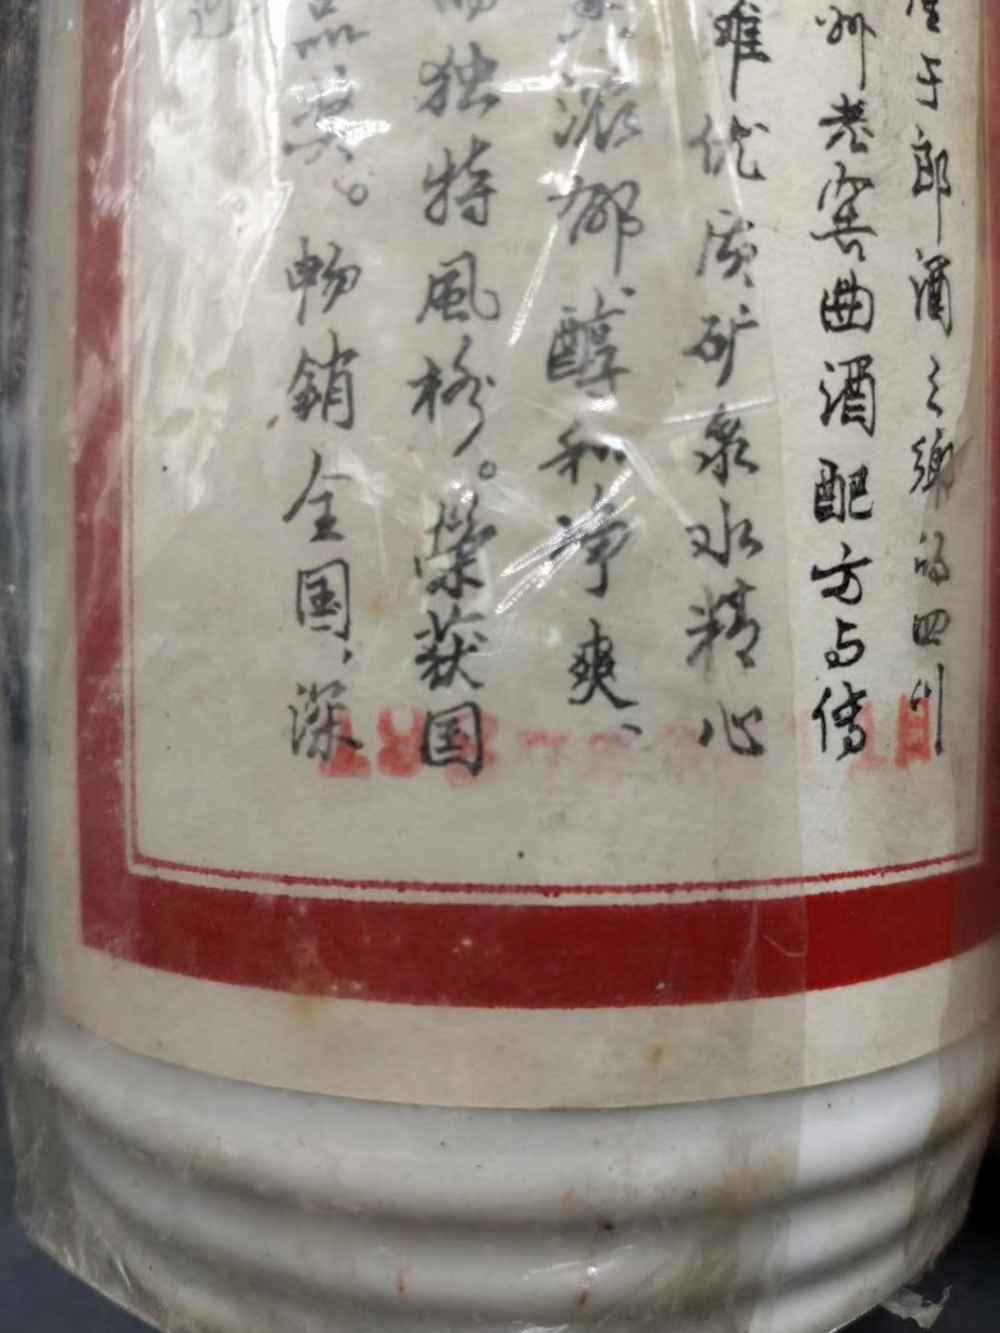 于郎酒之鄉的四川
州老窖曲酒配方与传
难优质矿泉水精心
浓郁醇和净爽、
独特風格。榮获国
品奖。畅銷全国、深